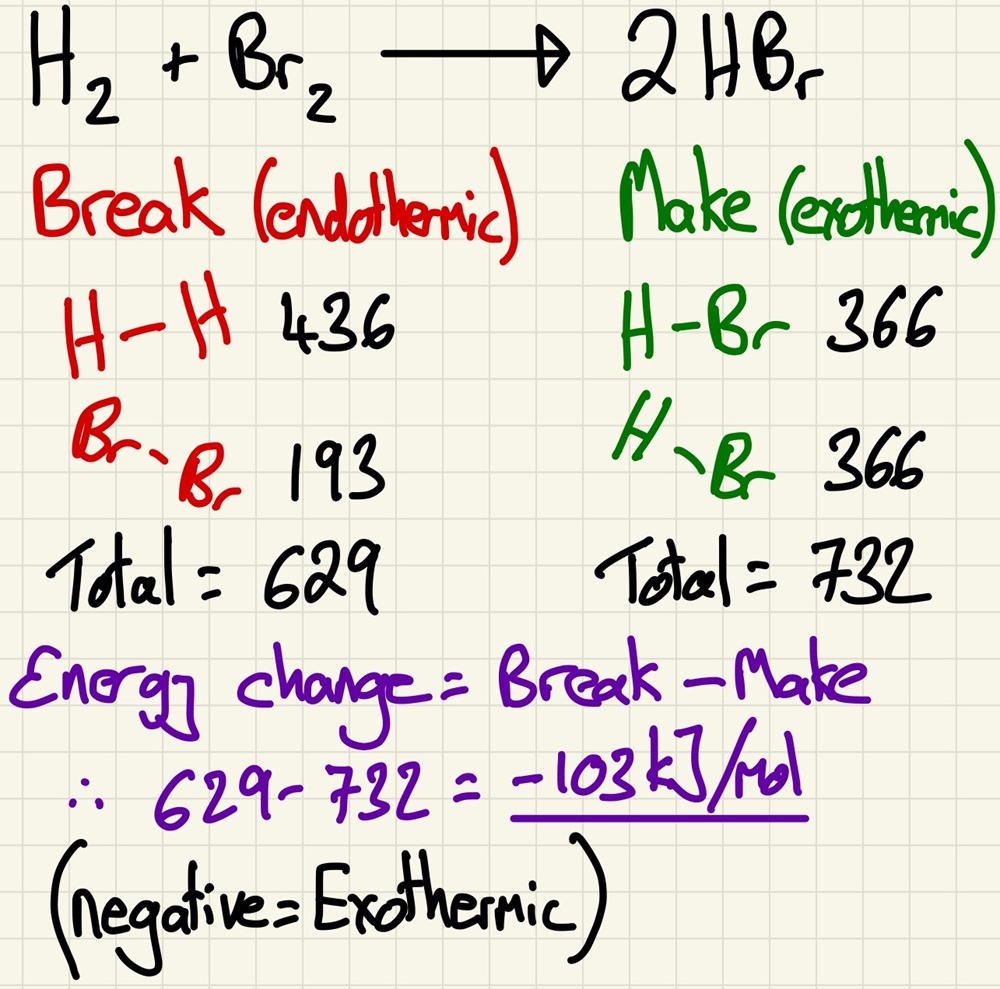 H₂ + Br₂ ⟶ 2HBr
Break (endothermic) Make (exothermic)
H-H 436 H-Br 366
Br-Br 193 H-Br 366
Total = 629 Total = 732
Energy change = Break - Make
∴ 629 - 732 = -103 kJ/mol
(negative = Exothermic)